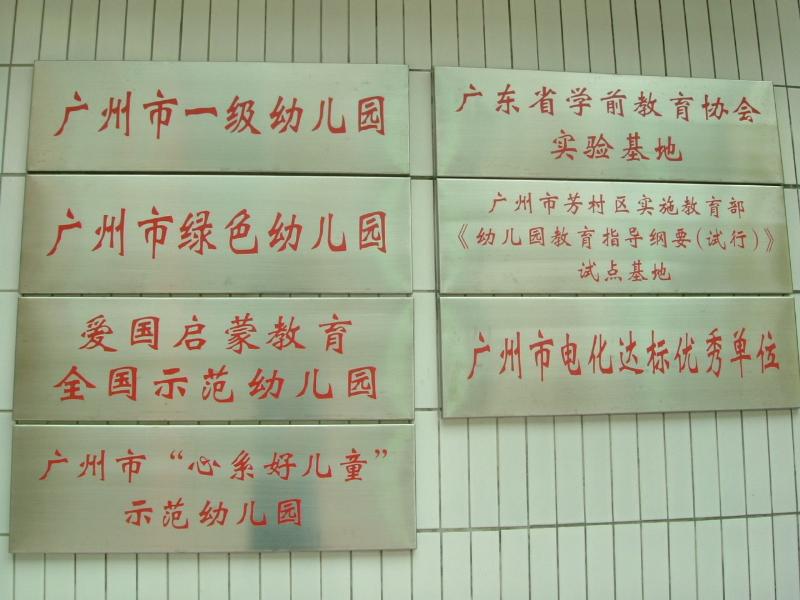 广州市一级幼儿园
广州市绿色幼儿园
爱国启蒙教育
全国示范幼儿园
广州市“心系好儿童”
示范幼儿园
广东省学前教育协会
实验基地
广州市芳村区实施教育部
《幼儿园教育指导纲要(试行)》
试点基地
广州市电化达标优秀单位